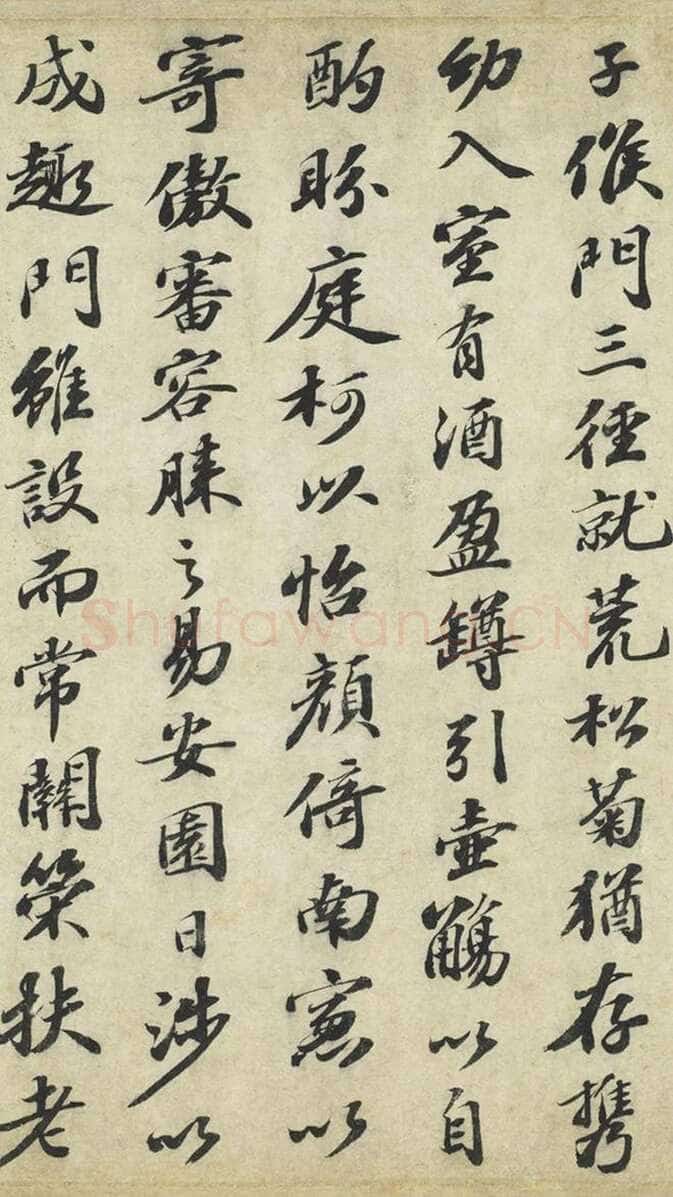 子候門三徑就荒松菊猶存携
幼入室有酒盈罇引壺觴以自
酌盼庭柯以怡顏倚南窓以
寄傲審容膝之易安園日涉以
成趣門雖設而常關策扶老
Shufawang.CN